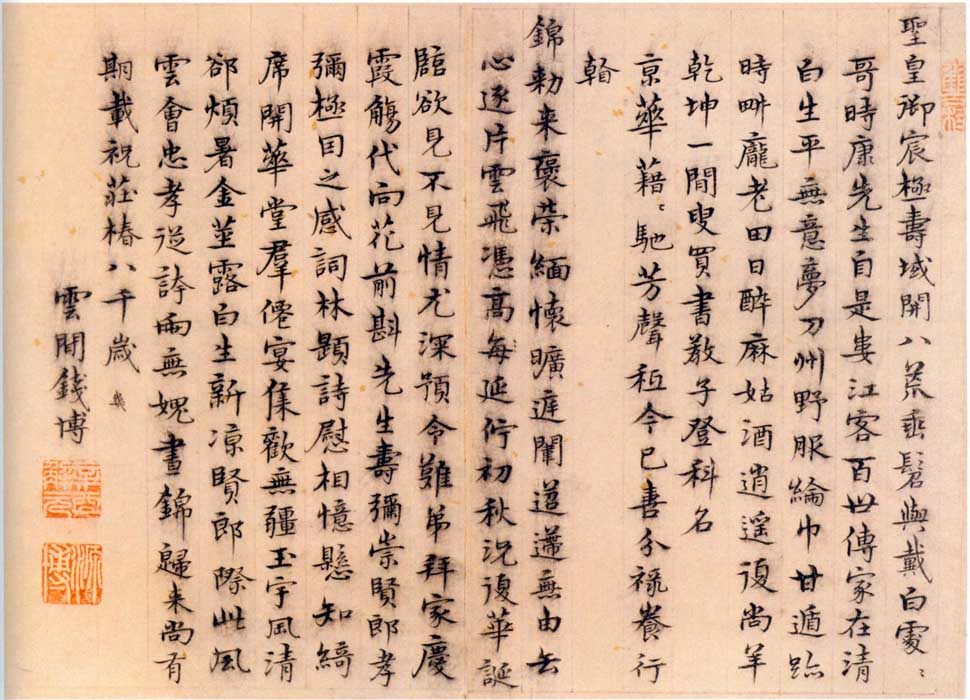 聖皇御宸極壽域開八荒垂髫與戴白處〻
哥時康先生自是婁江客百世傳家在清
白生平無意夢刀州野服綸巾甘遁跡
時畊龐老田日醉麻姑酒逍遥復尚羊
乾坤一閒叟買書教子登科名
京華藉〻馳芳聲秪今已喜分祿養行
看
錦勅来褒荣緬懷曠庭闈迢遞無由去
心逐片雲飛憑高每延佇初秋況復華誕
臨欲見不見情尤深預令難弟拜家慶
霞觴代向花前斟先生壽彌崇賢郎孝
彌極因之感詞林題詩慰相憶懸知綺
席開華堂羣僊宴集歡無疆玉宇風清
卻煩暑金莖露白生新凉賢郎際此風
雲會忠孝從誇兩無媿晝錦歸来尚有
期載祝莊椿八千歳
雲間錢博